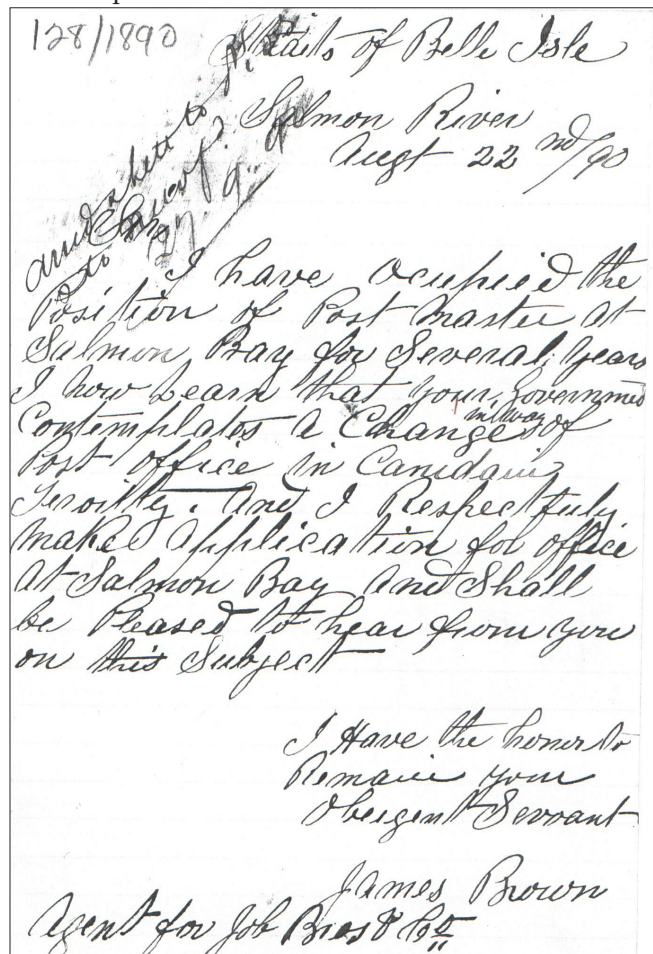 128/1890
Straits of Belle Isle
Salmon River
Augt 22 nd/90
27. 9.
I have Ocupied the
Position of Post Master at
Salmon Bay for Several years
I now Learn that your Governmed
Contemplates a Change of
Post office in Canidain
and I Respectfuly
make application for office
at Salmon Bay and Shall
be Pleased to hear from you
on this Subject
I Have the honor to
Remain your
Obeigent Servant
James Brown
Agent for Job Bros & Co